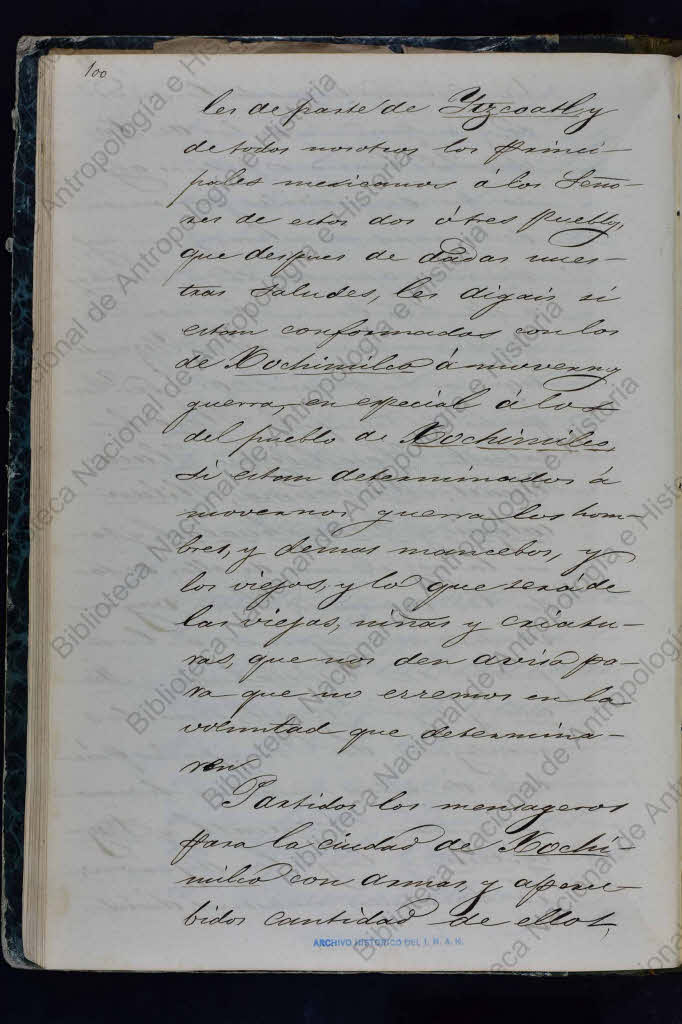 100
les de parte de Ytzcoatl y
de todos nosotros los princi-
pales mexicanos á los Seño-
res de estos dos ó tres pueblos,
que despues de dadas nues-
tras saludes, les digais si
estan conformados con los
de Xochimilco á movernos
guerra, en especial á los
del pueblo de Xochimilco,
si estan determinados á
movernos guerra los hom-
bres, y demas mancebos, y
los viejos, y lo que será de
las viejas, niñas y criatu-
ras, que nos den aviso pa-
ra que no erremos en la
voluntad que determina-
ren.
Partidos los mensageros
para la ciudad de Xochi-
milco con armas, y aperci-
bidos cantidad de ellos,
ARCHIVO HISTORICO DEL I. N. A. H.
Biblioteca Nacional de Antropología e Historia